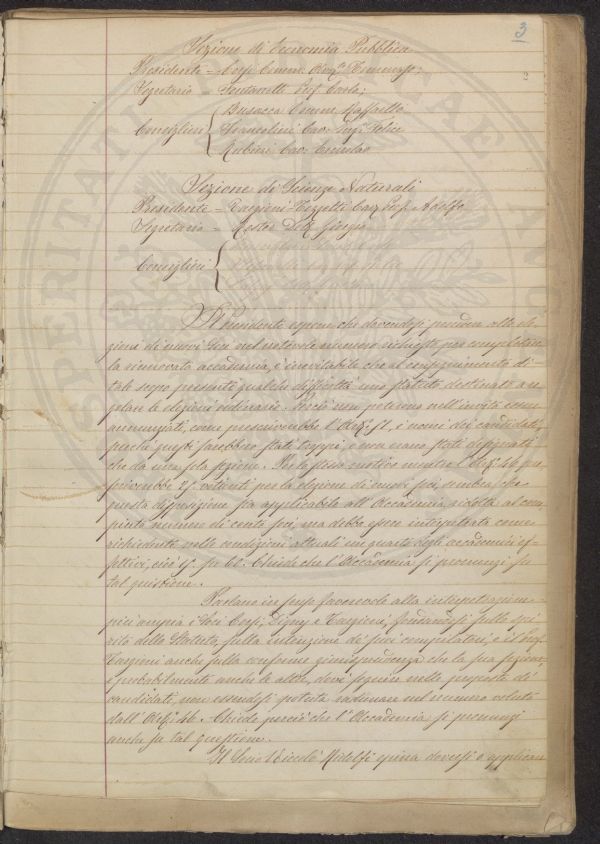 3
2
Sezione di Economia Pubblica
Presidente = Corsi Comm. Tommaso;
Segretario = Fontanelli Prof. Carlo;
Busacca Comm. Raffaello
Consiglieri Francolini Cav. Ing. Felice
Rubieri Cav. Ermolao
Sezione di Scienze Naturali
Presidente = Targioni-Tozzetti Cav. Prof. Adolfo
Segretario = Roster Dott. Giorgio
Consiglieri
Il Presidente espone che dovendosi procedere alle ele-
zioni di nuovi Soci nel notevole numero richiesto per completare
la rinnovata accademia, è inevitabile che al conseguimento di
tale scopo presenti qualche difficoltà uno statuto destinato a re-
golare le elezioni ordinarie. Perciò non poterono nell'invito esser
annunziati, come prescriverebbe l'Art. 51, i nomi dei candidati,
perché questi sarebbero stati troppi, e non erano stati designati
che da una sola sezione. Per lo stesso motivo mentre l'Art. 46 pre-
scriverebbe 25 votanti per la elezione di nuovi soci, sembra che
questa disposizione sia applicabile all'Accademia ridotta al com-
pleto numero di cento soci, ma debba essere interpretata come
richiedente nelle condizioni attuali un quarto degli accademici ef-
fettivi, cioè 15 su 61. Chiede che l'Accademia si pronunzi su
tal quistione.
Parlano in senso favorevole alla interpretazione
più ampia i Soci Corsi, Digny e Targioni, fondandosi sullo spi-
rito dello Statuto, sulla intenzione de' suoi compilatori, e il Prof.
Targioni anche sulla conforme giurisprudenza che la sua sezione,
e probabilmente anche le altre, dové seguire nelle proposte di
candidati, non essendosi potuta radunare nel numero voluto
dall'Art. 46. Chiede perciò che l'Accademia si pronunzi
anche su tal questione.
Il Socio Niccolò Ridolfi opina doversi applicare